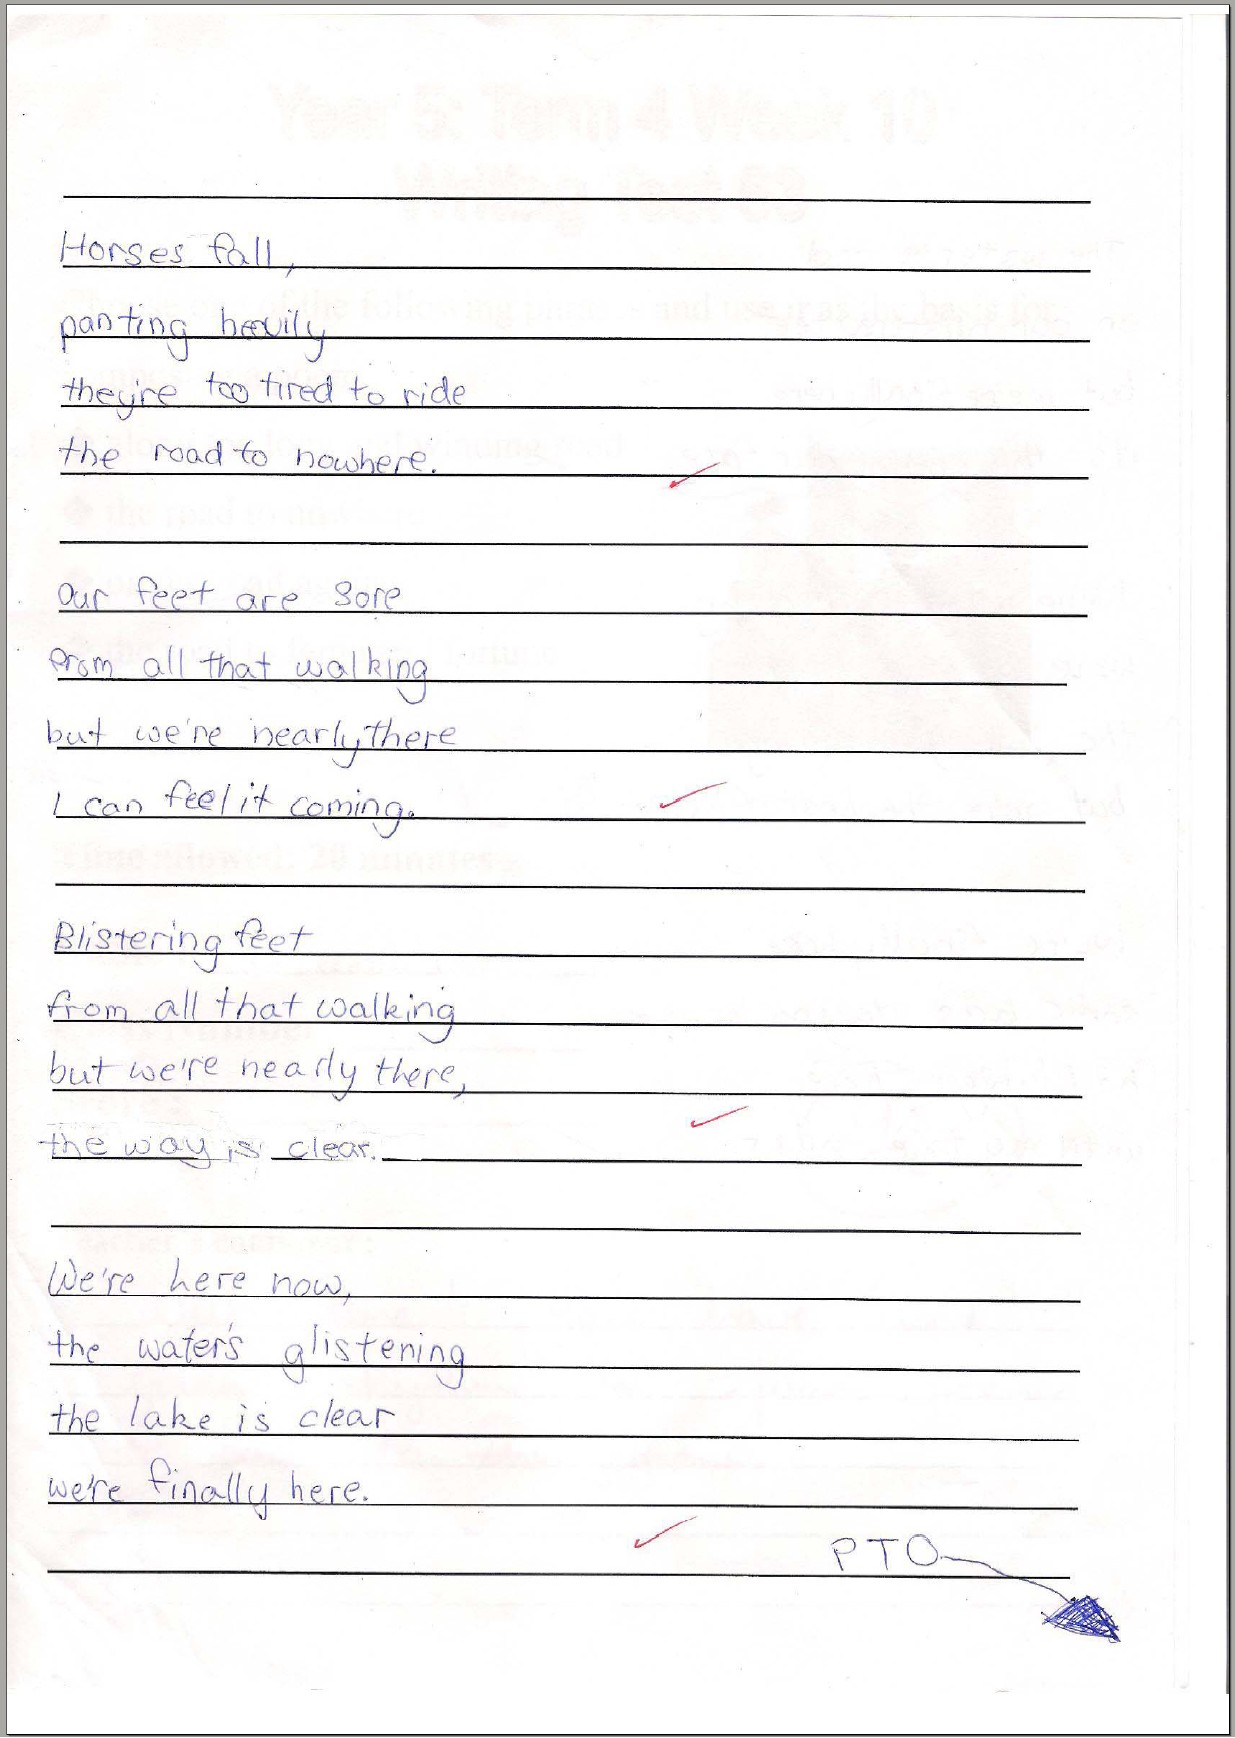 Year 5: Term 4 Week 10
Horses fall,
panting heavily
they're too tired to ride
the road to nowhere.
Our feet are sore
From all that walking
but we're nearly there
I can feel it coming.
Blistering feet
from all that walking
but we're nearly there,
the way is clear.
We're here now,
the water's glistening
the lake is clear
we're finally here.
PTO